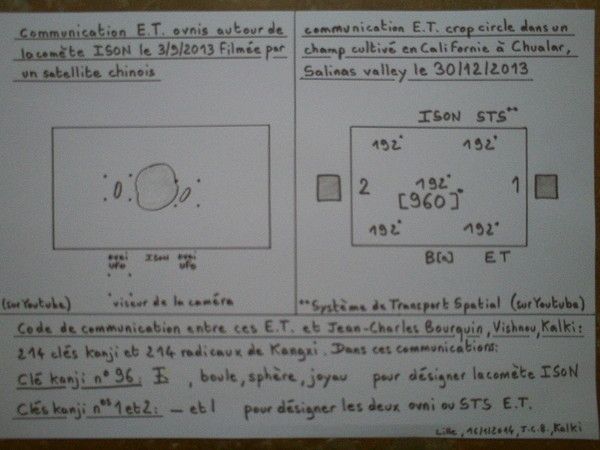 Communication E.T. ovnis autour de
la comète ISON le 3/9/2013 Filmée par
un satellite chinois
ovni ISON ovni
UFO UFO
viseur de la caméra
(sur Youtube)
communication E.T. crop circle dans un
champ cultivé en Californie à Chualar,
Salinas valley le 30/12/2013
ISON STS**
192* 192*
2 192* 1
[960]*
192* 192*
B[n] E T
**Système de Transport Spatial (sur Youtube)
Code de communication entre ces E.T. et Jean-Charles Bourquin, Vishnou, Kalki:
214 clés kanji et 214 radicaux de Kangxi. Dans ces communications:
Clé kanji n° 96: 玉, boule, sphère, joyau pour désigner la comète ISON
Clés kanji nos 1 et 2: — et | pour désigner les deux ovni ou STS E.T.
Lille, 16/1/2014, J.C.B., Kalki